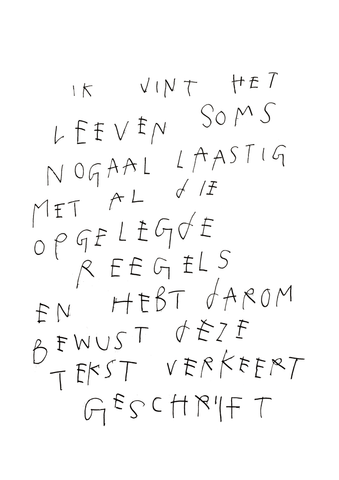 IK VINT HET
LEEVEN SOMS
NOGAAL LAASTIG
MET AL dIE
OPGELEGdE
REEGELS
EN HEBT dAROM
BEWUST dEZE
TEKST VERKEERT
GESCHRIJFT